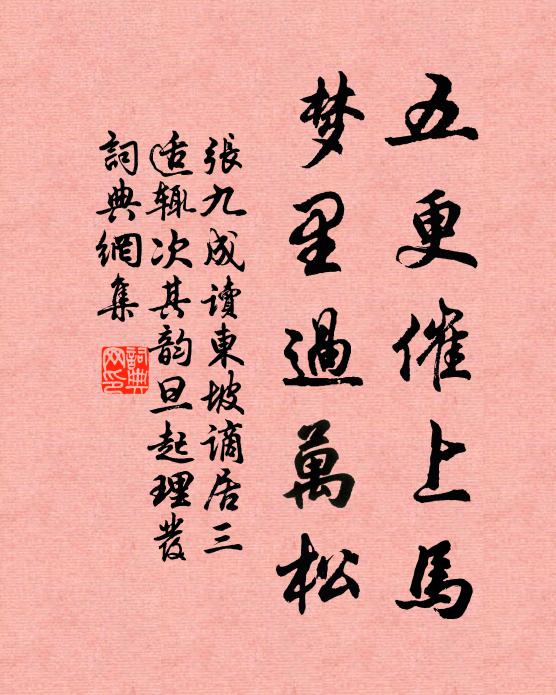 五更催上馬
梦里過萬松
張九成讀東坡謫居三
适輒次其韵旦起理發
詞典網集
詞典
網印